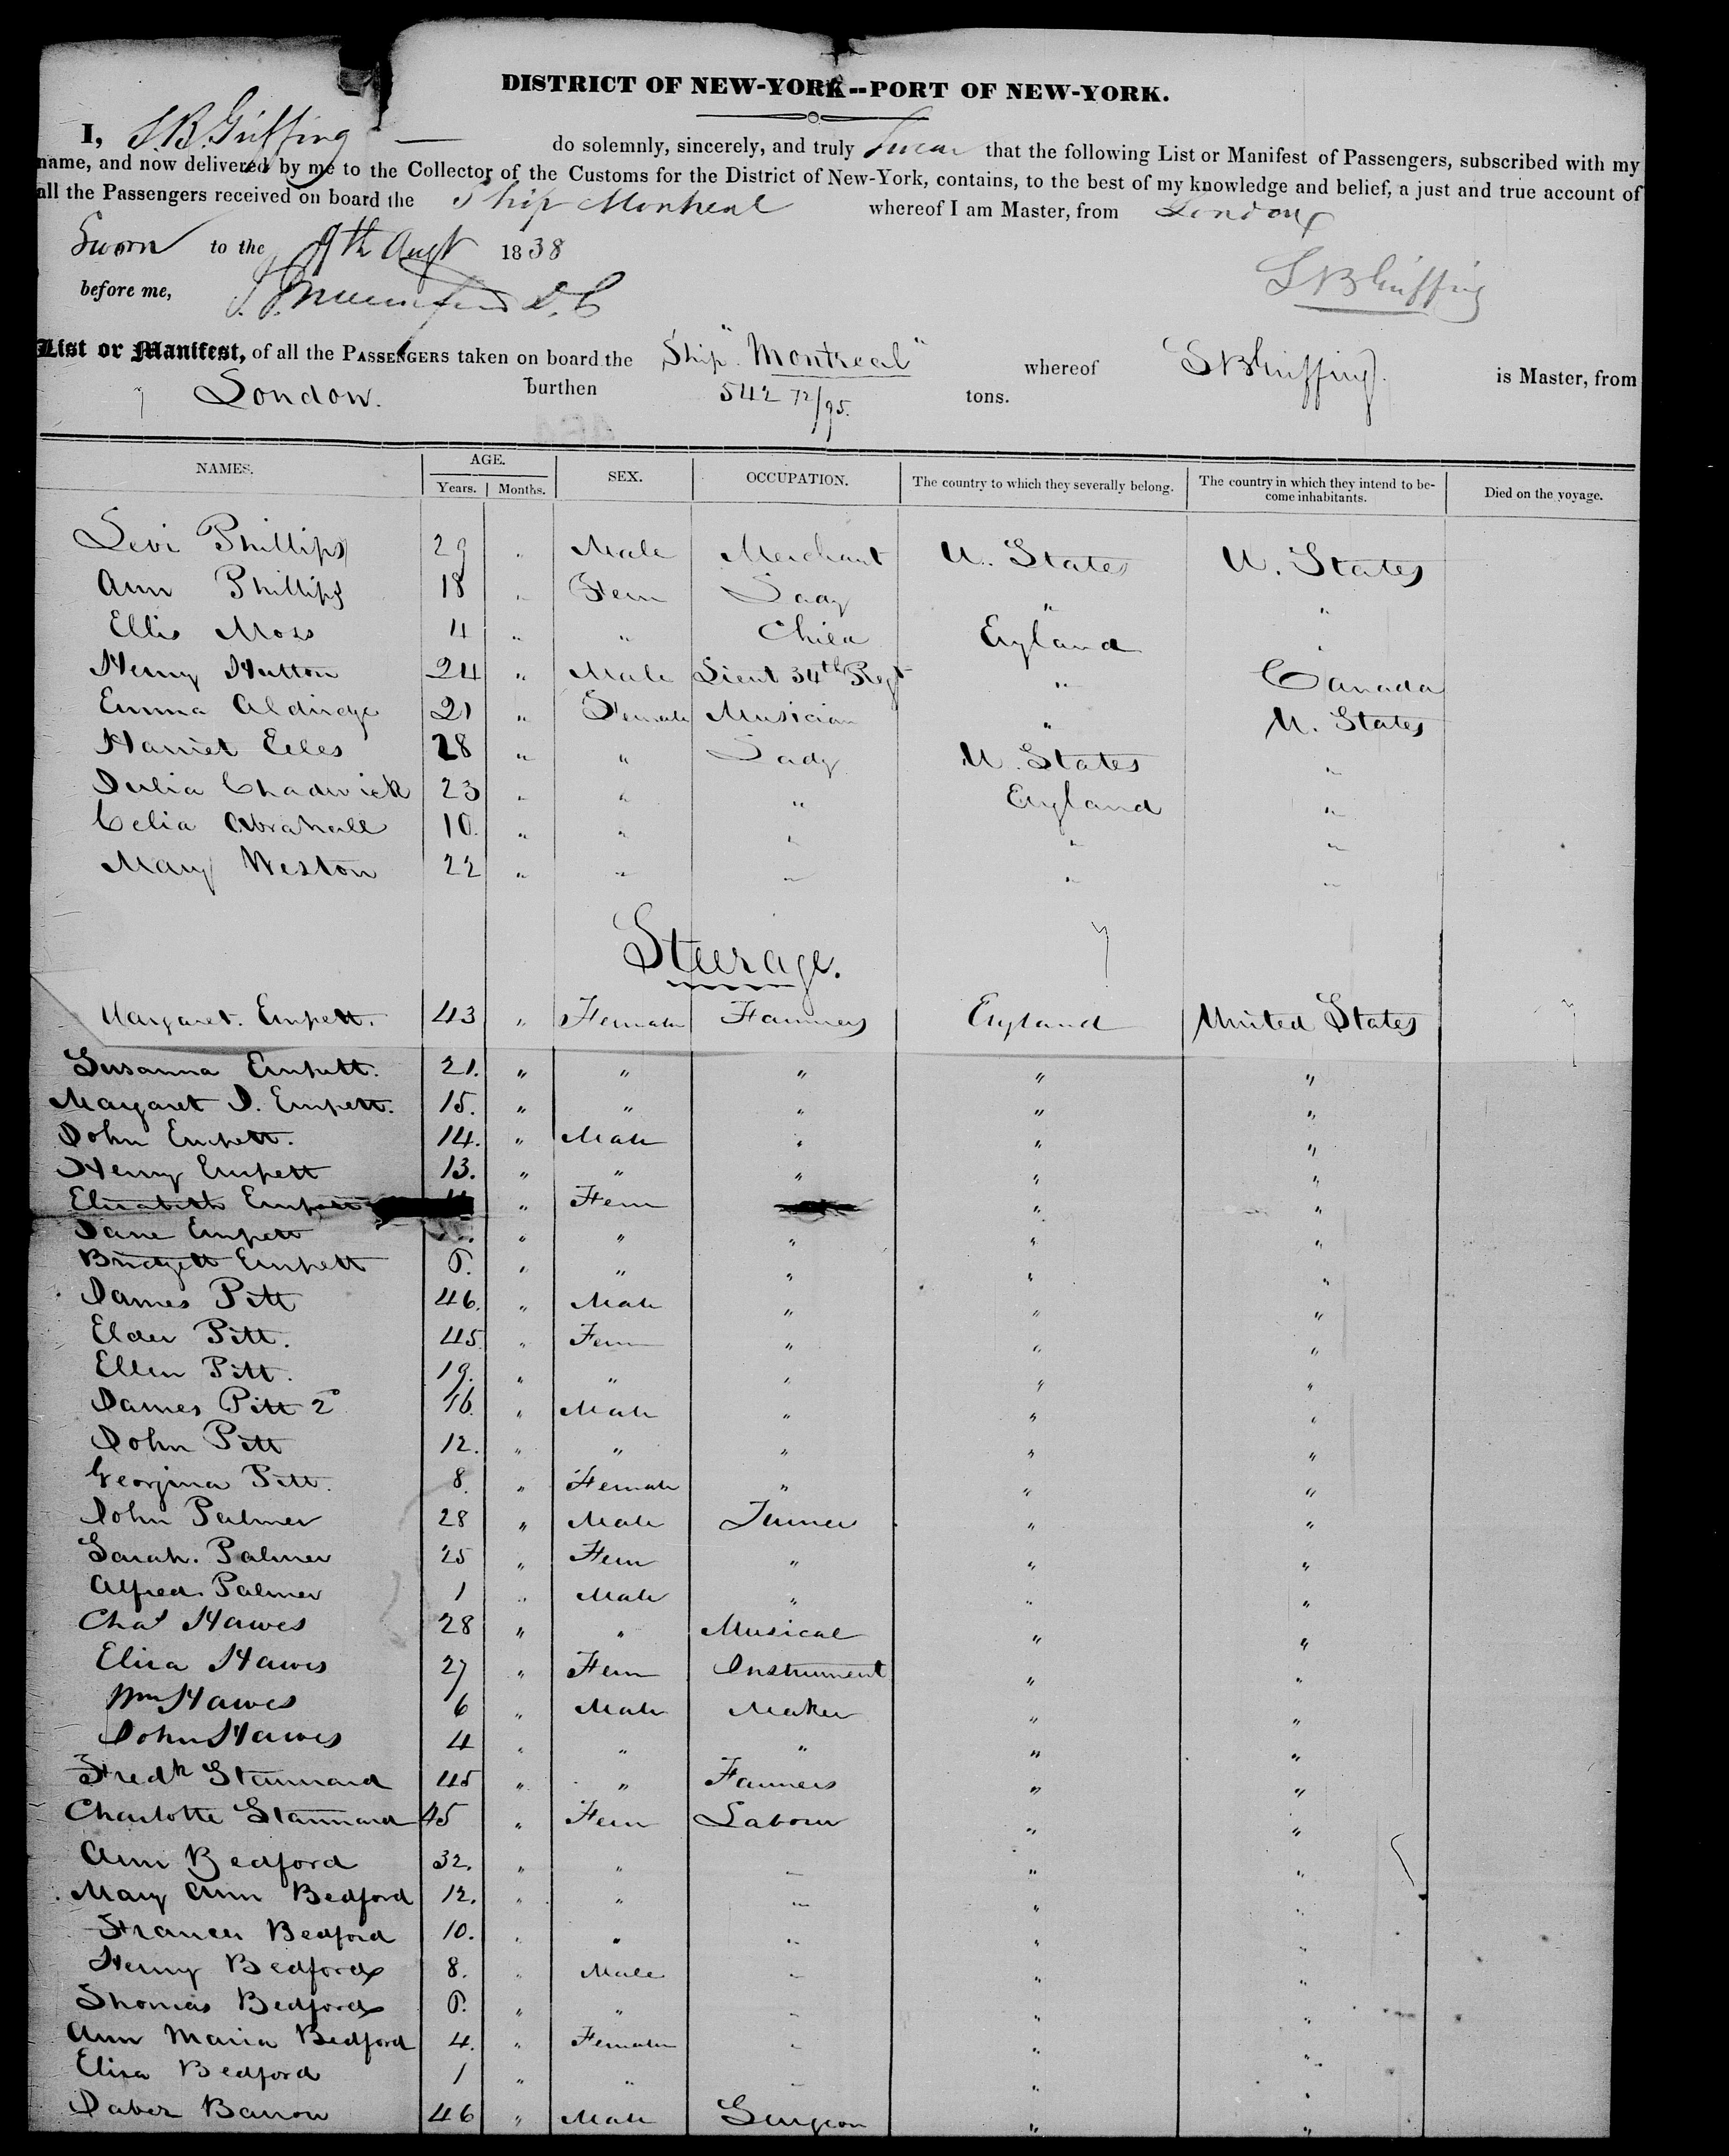 DISTRICT OF NEW-YORK--PORT OF NEW-YORK.
I, S.B. Griffing do solemnly, sincerely, and truly Swear that the following List or Manifest of Passengers, subscribed with my
name, and now delivered by me to the Collector of the Customs for the District of New-York, contains, to the best of my knowledge and belief, a just and true account of
all the Passengers received on board the Ship Montreal whereof I am Master, from London
Sworn to the 9th Augt 1838
S B Griffing
before me, D. C
List or Manifest, of all the PASSENGERS taken on board the Ship "Montreal" whereof S B Griffing is Master, from
London. burthen 542 72/95. tons.
NAMES. AGE. SEX. OCCUPATION. The country to which they severally belong. The country in which they intend to be- Died on the voyage.
Years. Months. come inhabitants.
Levi Phillips 29 " Male Merchant U. States U. States
Ann Phillips 18 " Fem Lady " "
Ellis Moss 4 " " Child England "
Henry Hutton 24 " Male Lieut 34th Regt " Canada
Emma Aldridge 21 " Female Musician " U. States
Harriet Eeles 28 " " Lady U. States "
Julia Chadwick 23 " " " England "
Celia Abrahall 10. " " " " "
Mary Weston 22 " " " " "
Steerage.
Margaret. Empett. 43 " Female Farmers England United States
Susanna Empett. 21. " " " " "
Margaret J. Empett. 15. " " " " "
John Empett. 14. " Male " " "
Henry Empett 13. " " " " "
Elizabeth Empett " Fem " "
Jane Empett " " " " "
Bridgett Empett 6. " " " " "
James Pitt 46. " Male " " "
Elder Pitt. 45 " Fem " " "
Ellen Pitt. 19. " " " " "
James Pitt 2º 16. " Male " " "
John Pitt 12. " " " " "
Georgina Pitt. 8. " Female " " "
John Palmer 28 " Male Turner " "
Sarah. Palmer 25 " Fem " " "
Alfred Palmer 1 " Male " " "
Chas Hawes 28 " " Musical " "
Eliza Hawes 27 " Fem Instrument " "
Wm Hawes 6 " Male Maker " "
John Hawes 4 " " " " "
Fredk Stannard 45 " " Farmers " "
Charlotte Stannard 45 " Fem Labour " "
Ann Bedford 32. " " " " "
Mary Ann Bedford 12. " " " " "
Frances Bedford 10. " " " " "
Henry Bedford 8. " Male " " "
Thomas Bedford 6. " " " " "
Ann Maria Bedford 4. " Female " " "
Eliza Bedford 1 " " " " "
Jabez Barrow 46 " Male Surgeon " "